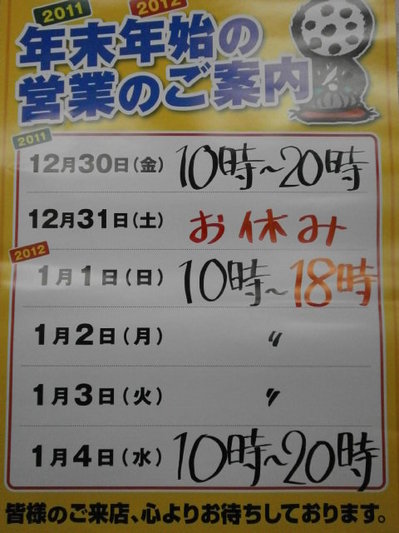 2011 2012
年末年始の
営業のご案内
2011
12月30日(金) 10時~20時
12月31日(土) お休み
2012
1月1日(日) 10時~18時
1月2日(月) 〃
1月3日(火) 〃
1月4日(水) 10時~20時
皆様のご来店、心よりお待ちしております。